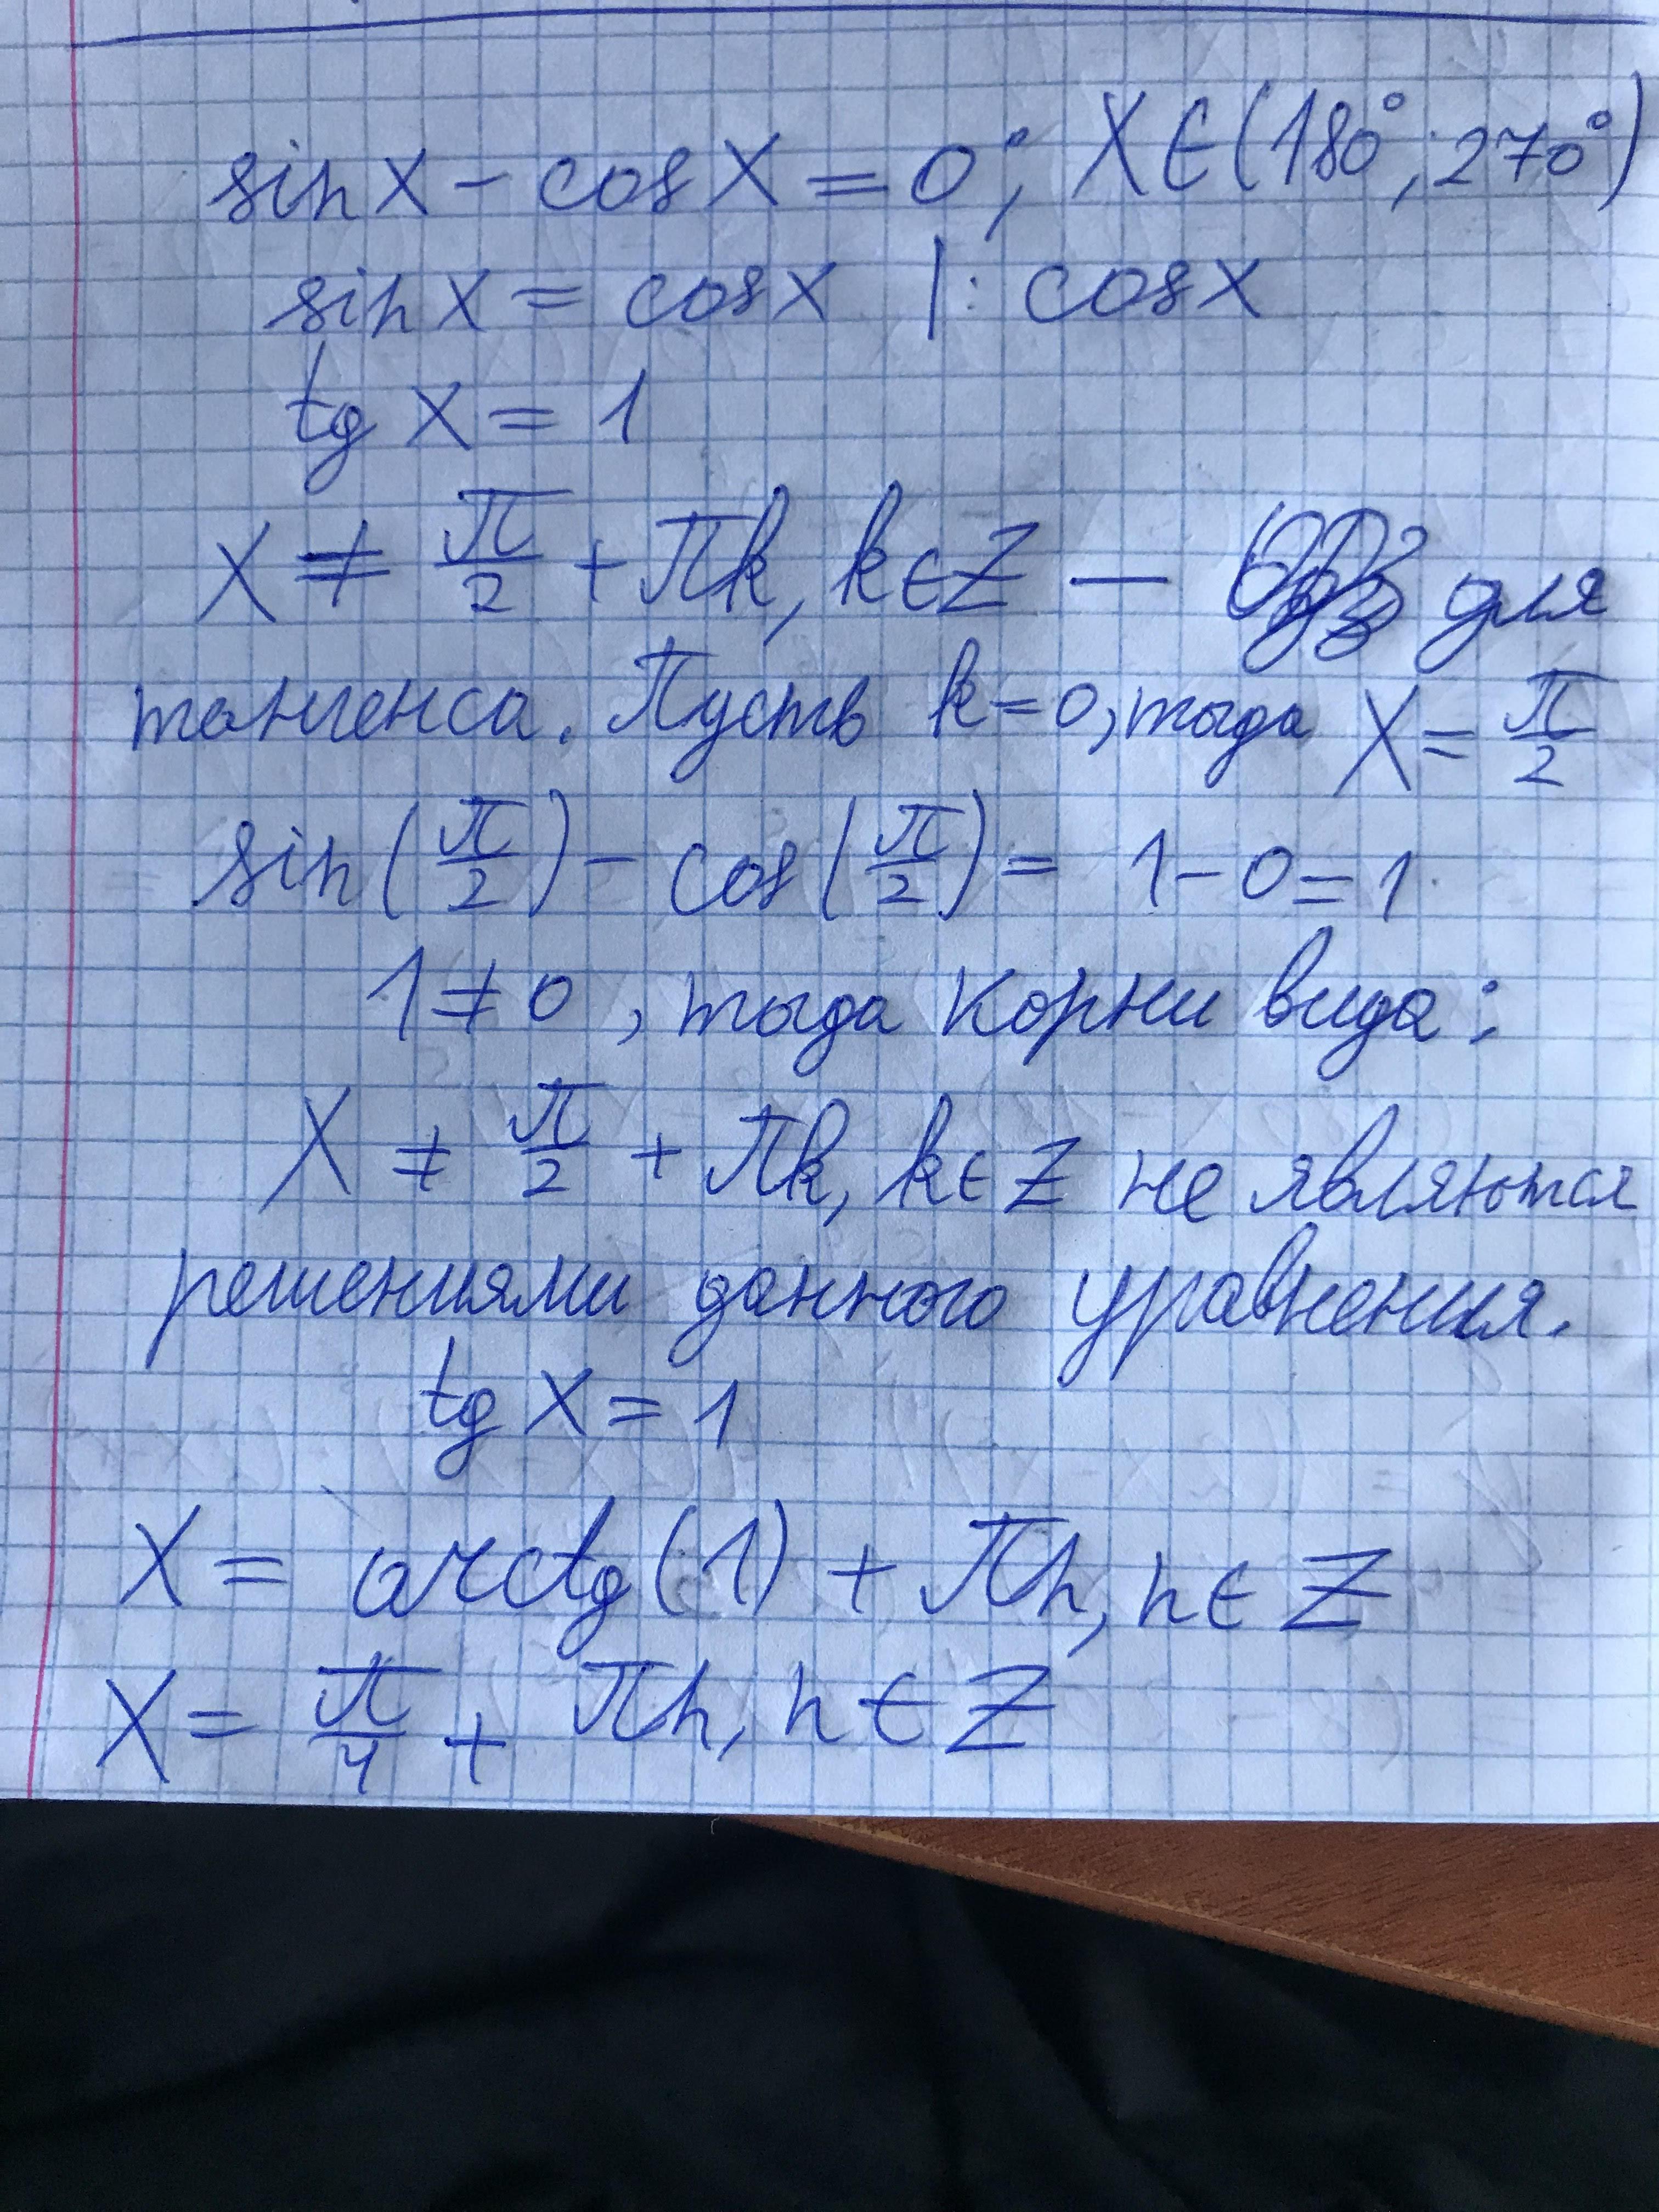 sin x - cos x = 0; x ∈ (180°; 270°)
sin x = cos x |: cos x
tg x = 1
x ≠ π/2 + πk, k ∈ Z — для
тангенса. Пусть k = 0, тогда x = π/2
sin(π/2) - cos(π/2) = 1 - 0 = 1
1 ≠ 0, тогда корни вида:
x ≠ π/2 + πk, k ∈ Z не являются
решениями данного уравнения.
tg x = 1
x = arctg(1) + πn, n ∈ Z
x = π/4 + πn, n ∈ Z